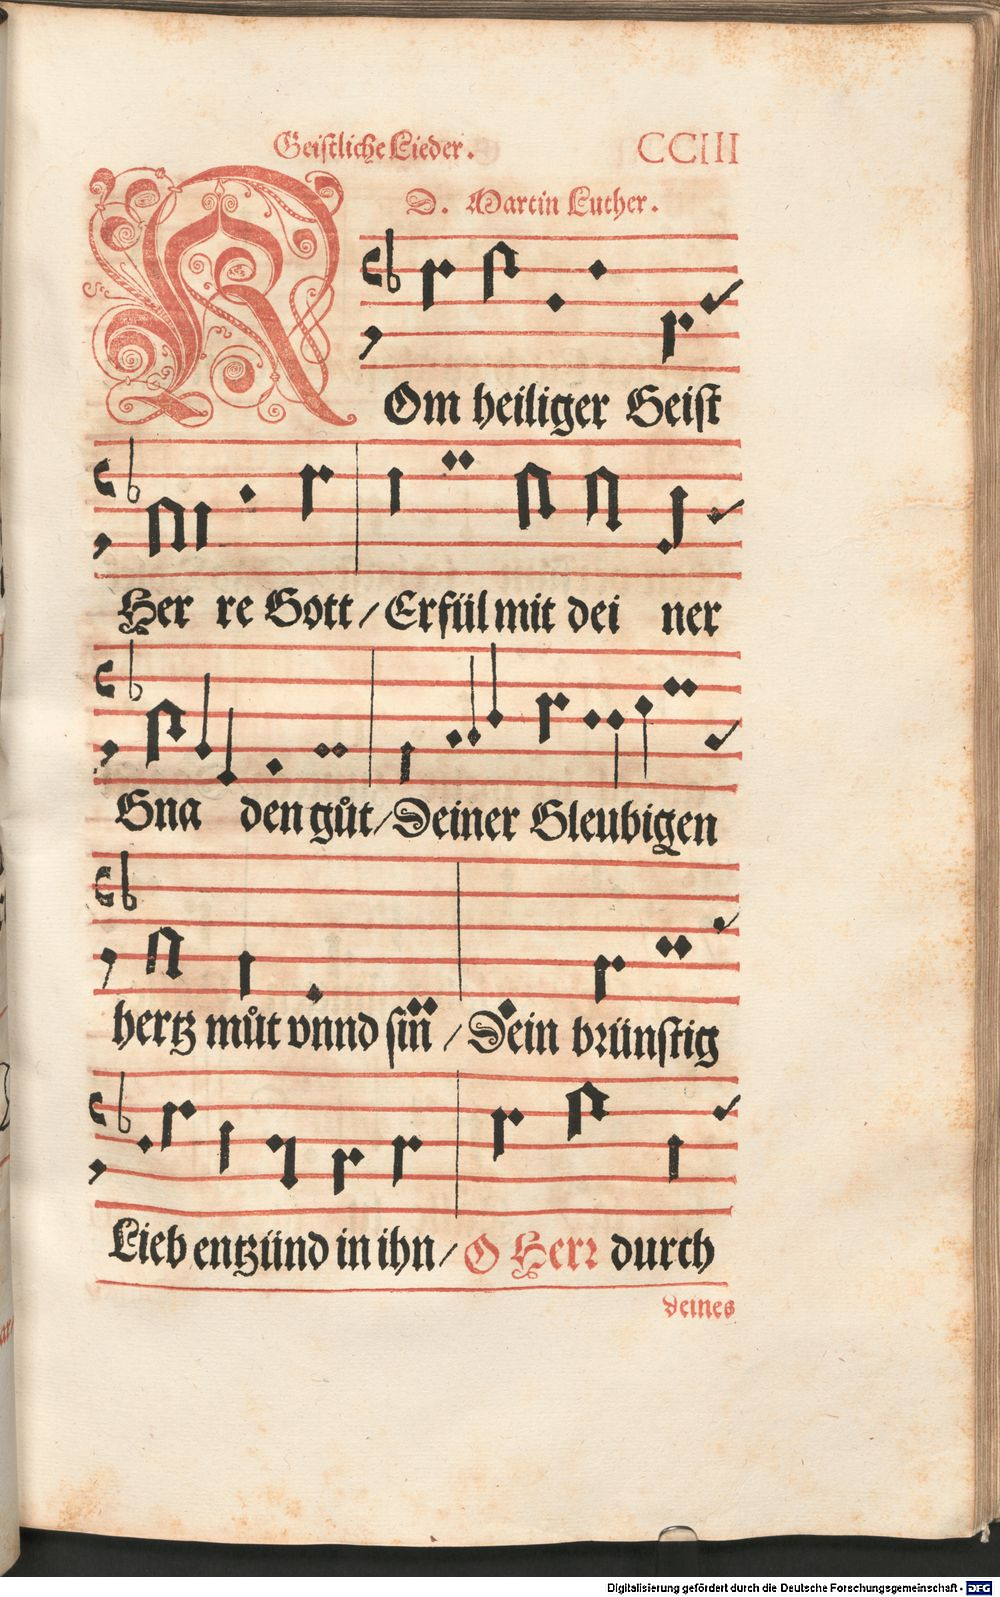 Geistliche Lieder.
CCIII
D. Martin Luther.
KOm heiliger Geist
Her re Gott / Erfül mit dei ner
Gna den gůt / Deiner Gleubigen
hertz můt vnnd sin̄ / Dein brünstig
Lieb entzünd in ihn / O Herr durch
deines
Digitalisierung gefördert durch die Deutsche Forschungsgemeinschaft - DFG